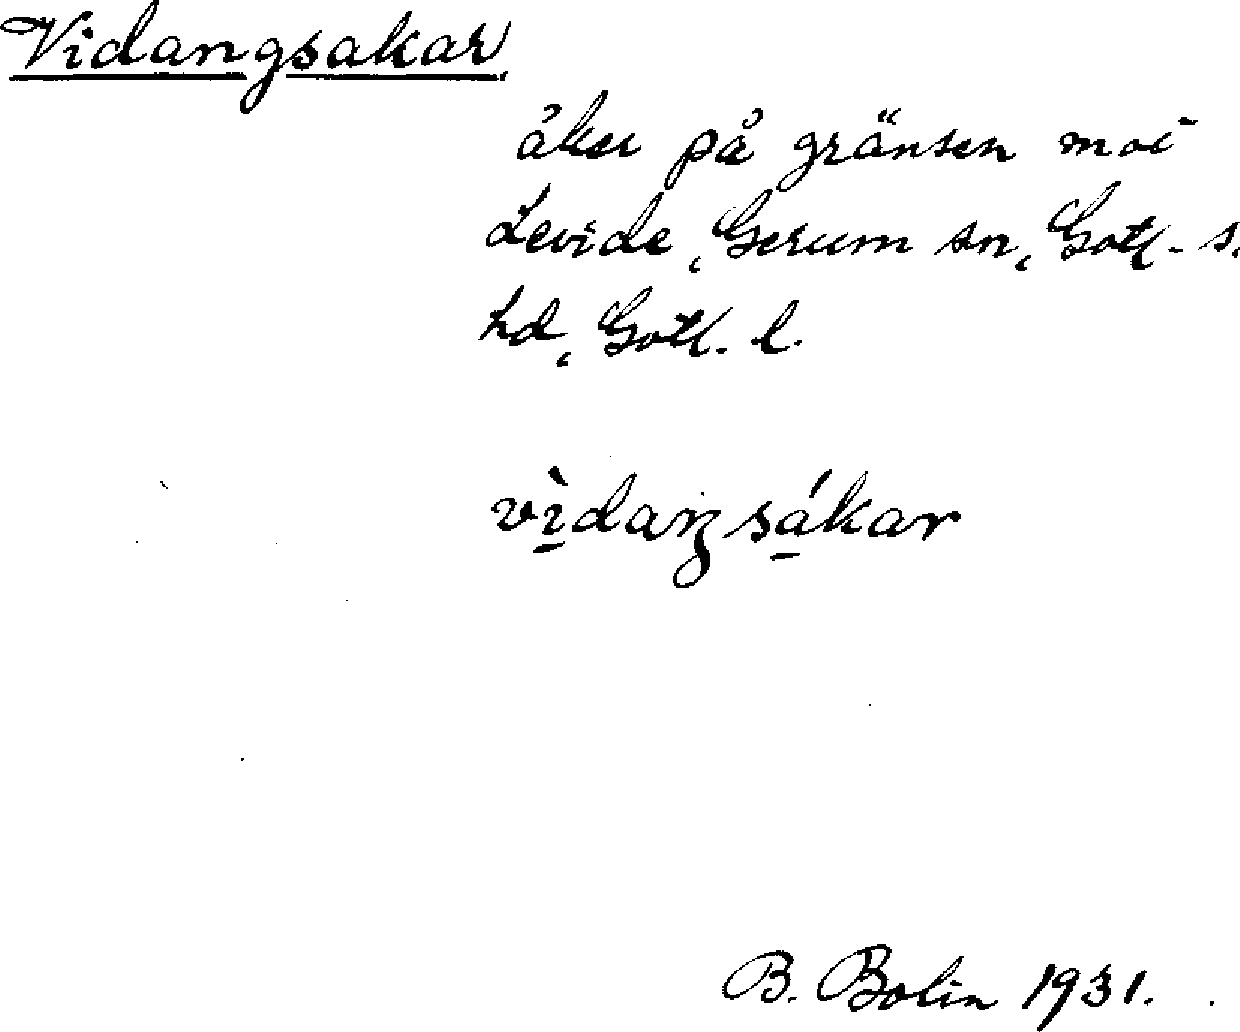 Vidangsakar
åker på gränsen mot
Levide, Gerum sn, Gotl. s.
hd, Gotl. l.
vı̱̀daŋsá̱kar
B. Bolin 1931.